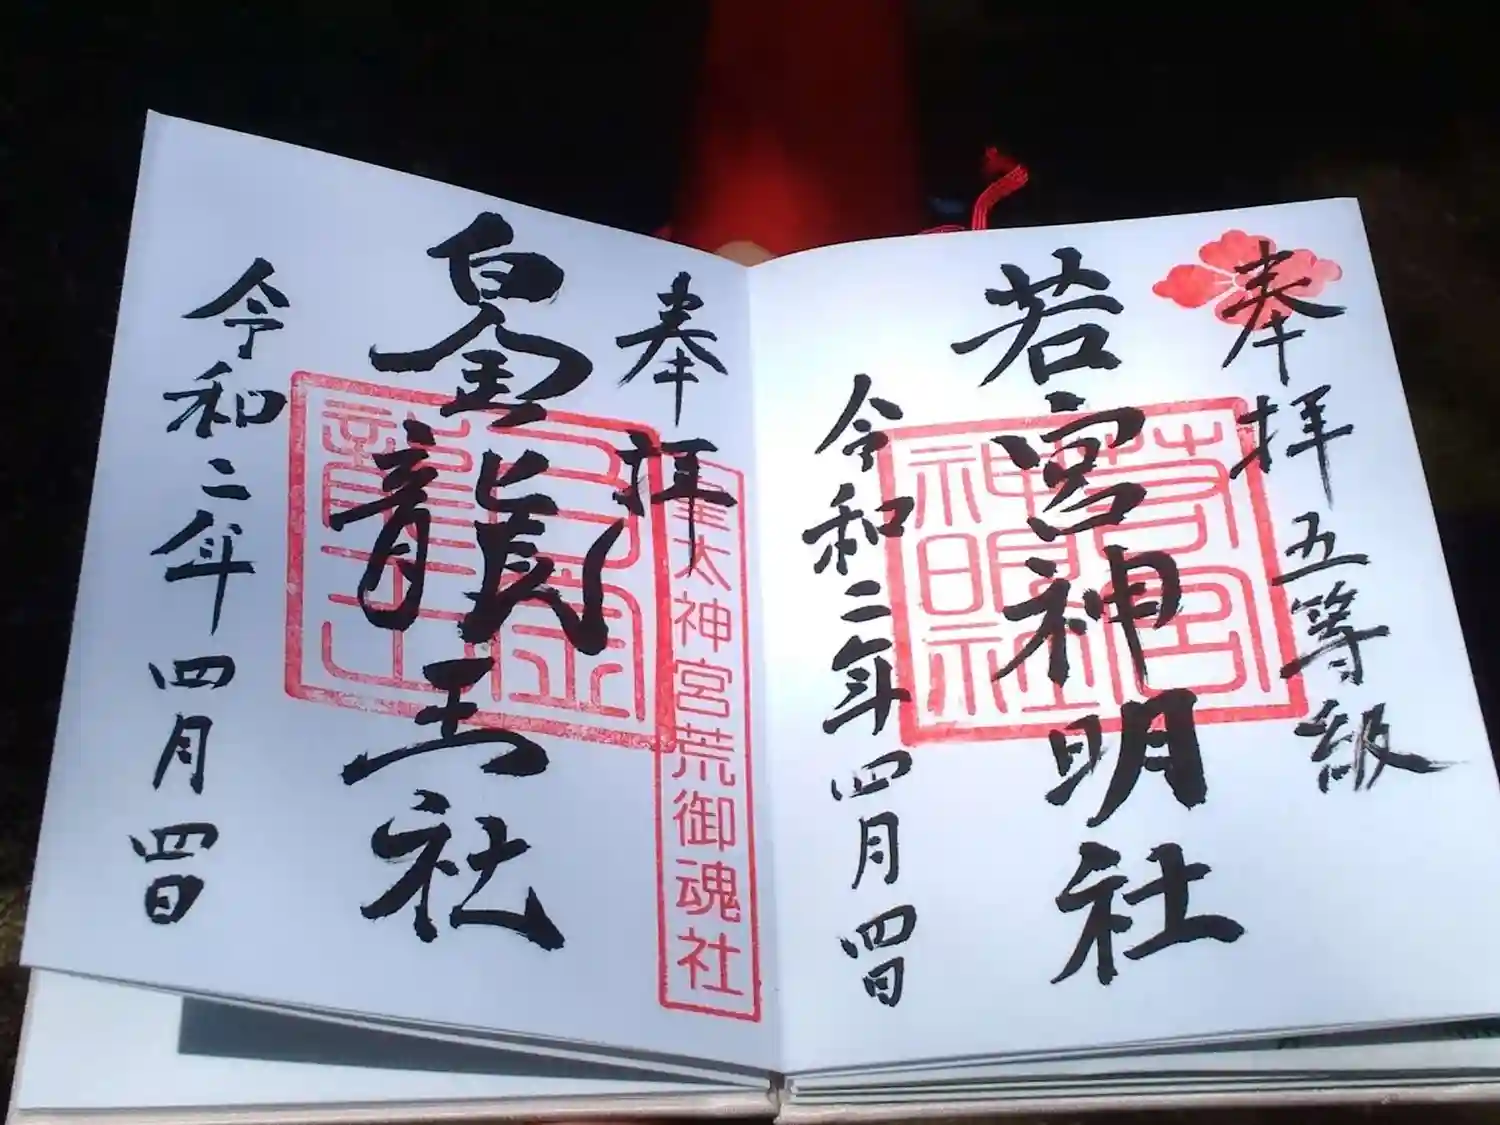 奉拝五等級
若宮神明社
若宮
神明社
令和二年四月四日
奉拝
皇太神宮荒御魂社
白金龍王社
白金
龍王
令和二年四月四日